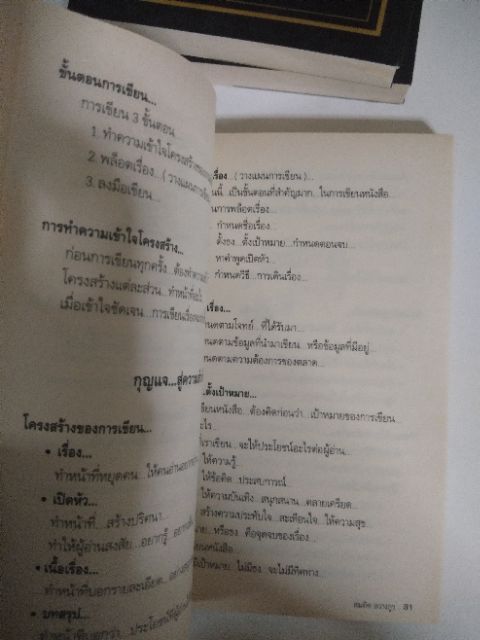 ขั้นตอนการเขียน...
การเขียน 3 ขั้นตอน...
1. ทำความเข้าใจโครงสร้าง
2. พล็อตเรื่อง...( วางแผนการเขียน
3. ลงมือเขียน...
การทำความเข้าใจโครงสร้าง...
ก่อนการเขียนทุกครั้ง...ต้องทำความ
โครงสร้างแต่ละส่วน...ทำหน้าที่อะไร
เมื่อเข้าใจชัดเจน...การเขียนเรื่อง
กุญแจ...สู่ความ
โครงสร้างของการเขียน...
• เรื่อง...
ทำหน้าที่หยุดคน...ให้คนอ่านอยาก
• เปิดหัว...
ทำหน้าที่...สร้างปริศนา...
ทำให้ผู้อ่านสงสัย...อยากรู้...อยาก
• เนื้อเรื่อง...
ทำหน้าที่บอกรายละเอียด...
• บทสรุป...
ทำหน้าที่บอกว่า...ประโยชน์ที่ผู้
เรื่อง...( วางแผนการเขียน )...
นนี้...เป็นขั้นตอนที่สำคัญมาก...ในการเขียนหนังสือ...
นการพล็อตเรื่อง...
กำหนดชื่อเรื่อง...
ตั้งธง...ตั้งเป้าหมาย...กำหนดตอนจบ...
หาคำพูดเปิดหัว...
กำหนดวิธี...การเดินเรื่อง...
เรื่อง...
นดตามโจทย์...ที่ได้รับมา...
นดตามข้อมูลที่นำมาเขียน...หรือข้อมูลที่มีอยู่...
นดตามความต้องการของตลาด...
.ตั้งเป้าหมาย...
ขียนหนังสือ...ต้องคิดก่อนว่า...เป้าหมายของการเขียน...
ะไร...
ที่เราเขียน...จะให้ประโยชน์อะไรต่อผู้อ่าน...
ให้ความรู้...
ให้ข้อคิด...ประสบการณ์...
ให้ความบันเทิง...สนุกสนาน...คลายเครียด...
สร้างความประทับใจ...สะเทือนใจ...ให้ความสุข...
าย...หรือธง...คือจุดจบของเรื่อง...
ยนหนังสือ...
เป้าหมาย...ไม่มีธง...จะไม่มีทิศทาง...
31